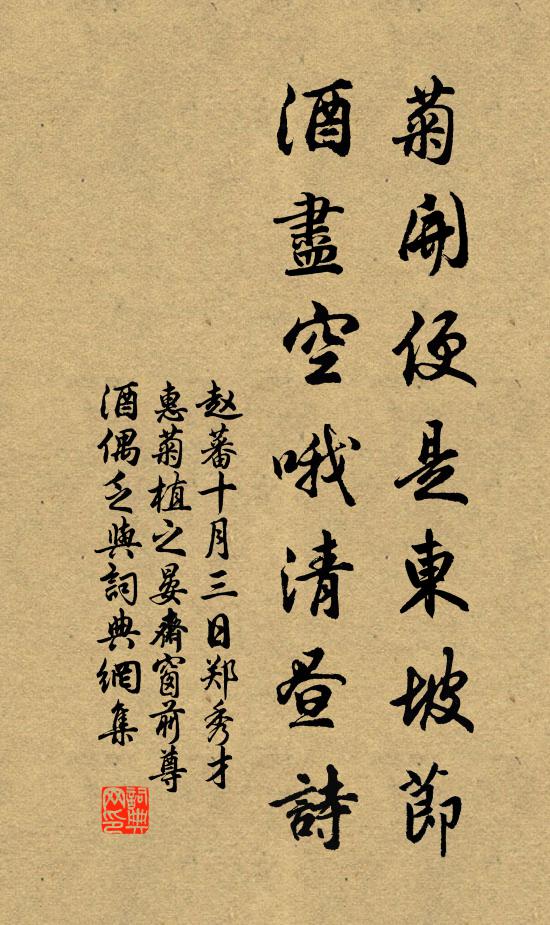 菊開便是東坡節
酒盡空哦清昼詩
赵蕃十月三日郑秀才
惠菊植之晏齋窗前尊
酒偶乏與詞典網集
詞典网印